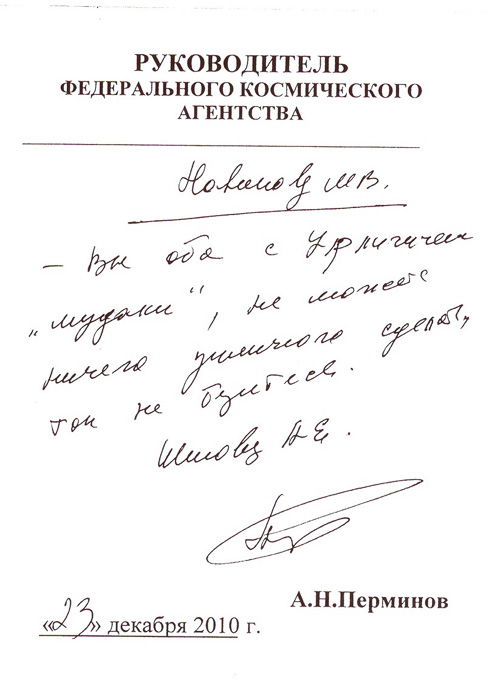 РУКОВОДИТЕЛЬ
ФЕДЕРАЛЬНОГО КОСМИЧЕСКОГО
АГЕНТСТВА
М.В.
— Вы оба с Урличичем
„мудаки“, не можете
ничего умного сделать,
так не
Шилову А.Е.
А.Н.Перминов
«23» декабря 2010 г.